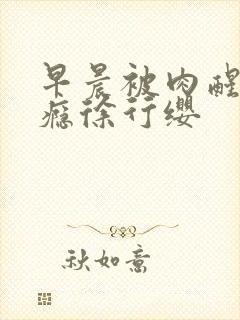 早晨被肉醒
瘾徐行缨
秋如意